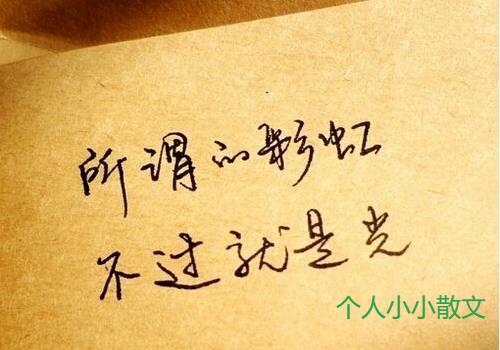 所谓的彩虹
不过就是光
个人小小散文